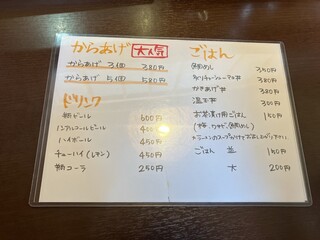 からあげ 大人気
からあげ 3個 380円
からあげ 5個 580円
ドリンク
瓶ビール 600円
ノンアルコールビール 400円
ハイボール 450円
チューハイ(レモン) 450円
瓶コーラ 250円
ごはん
鯛めし 350円
チャーシューマヨ丼 380円
かきあげ丼 380円
温玉丼 300円
お茶漬け用ごはん 150円
ごはん 並 150円
大 200円